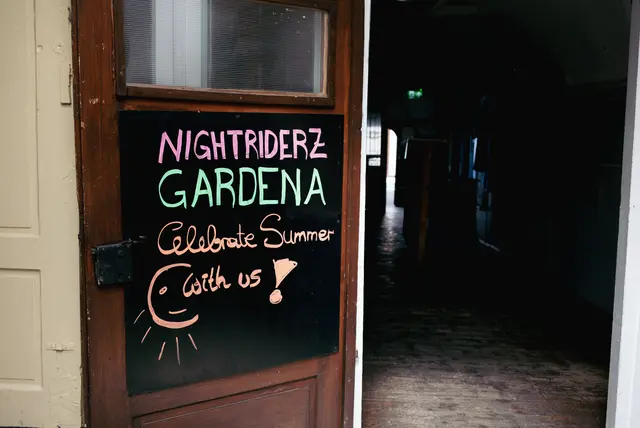 NIGHTRIDERZ
GARDENA
Celebrate Summer
with us!